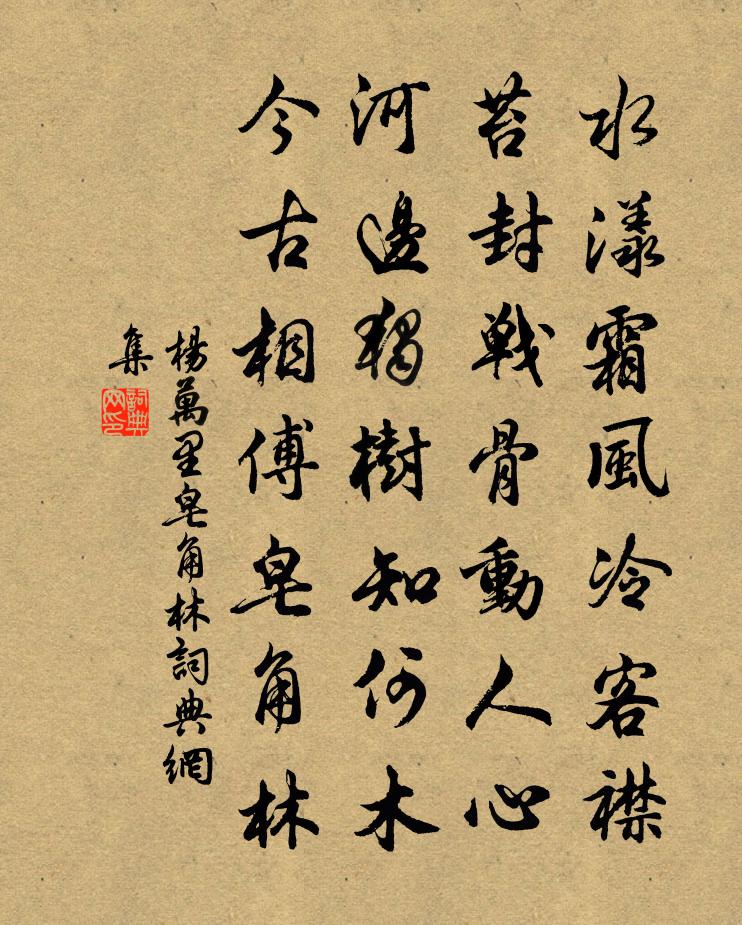 水漾霜風冷客襟
苔封戰骨動人心
河邊獨樹知何木
今古相傳皂角林
楊萬里皂角林詞典網
集
詞典網印